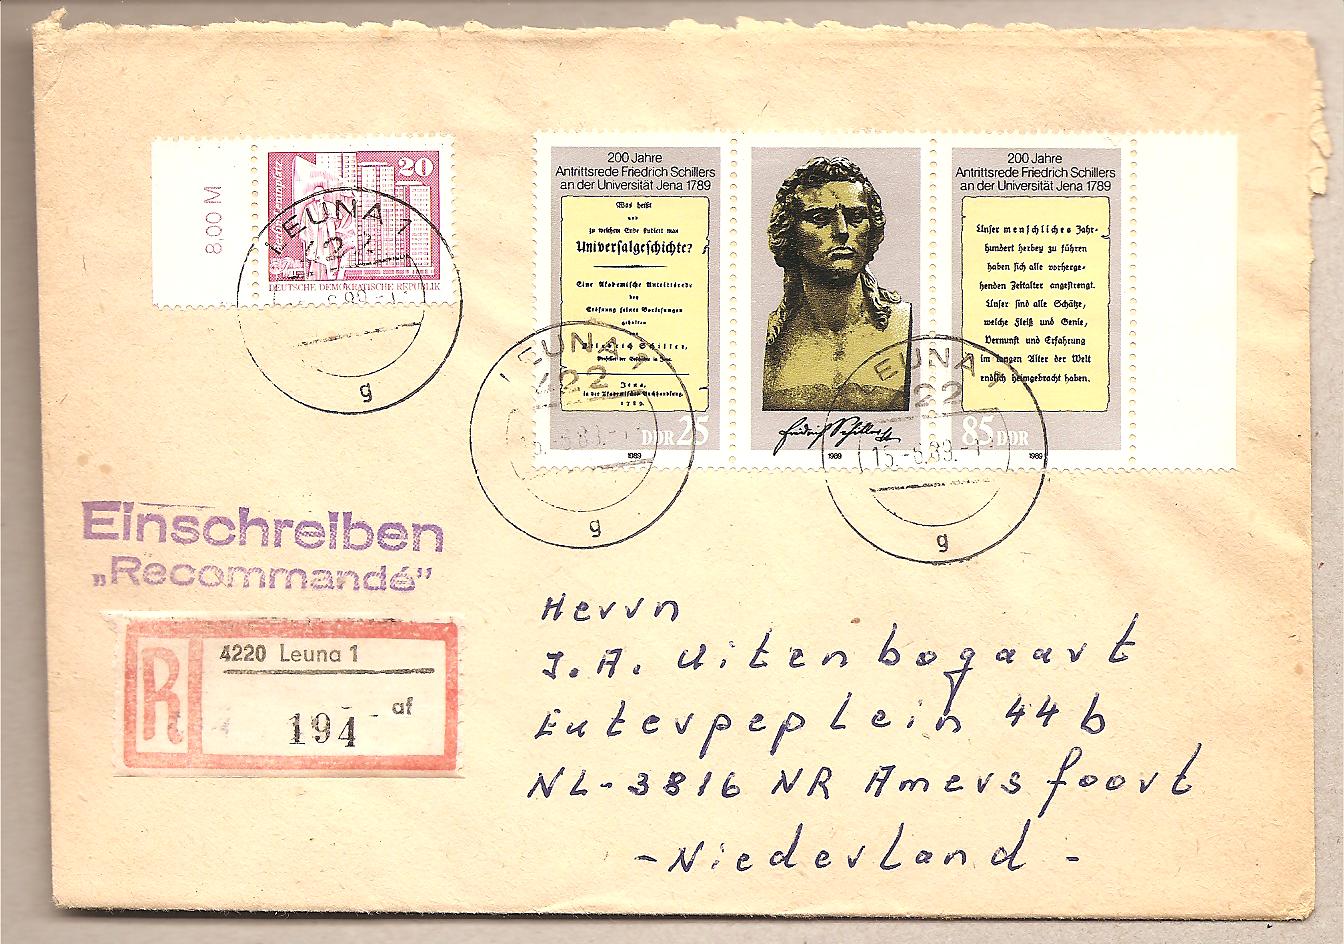 8,00 M
20
DEUTSCHE DEMOKRATISCHE REPUBLIK
LEUNA 1
422
g
200 Jahre
Antrittsrede Friedrich Schillers
an der Universität Jena 1789
Was heißt
und
zu welchem Ende studiert man
Universalgeschichte?
Eine Akademische Antrittsrede
bey
Eröfnung seiner Vorlesungen
gehalten
von
Friedrich Schiller,
Professor der Geschichte in Jena.
Jena,
in der Akademischen Buchhandlung,
1789.
DDR 25
1989
Friedrich Schiller
1989
200 Jahre
Antrittsrede Friedrich Schillers
an der Universität Jena 1789
Unser menschliches Jahr-
hundert herbey zu führen
haben sich alle vorherge-
henden Zeitalter angestrengt.
Unser sind alle Schätze,
welche Fleiß und Genie,
Vernunft und Erfahrung
im langen Alter der Welt
endlich heimgebracht haben.
85 DDR
1989
LEUNA 1
422
g
EUNA
22
15.-6.89.-1
g
Einschreiben
„Recommandé”
R
4220 Leuna 1
af
194
Herrn
J. A. Uitenbogaart
Euterpeplein 44b
NL-3816 NR Amersfoort
- Niederland -